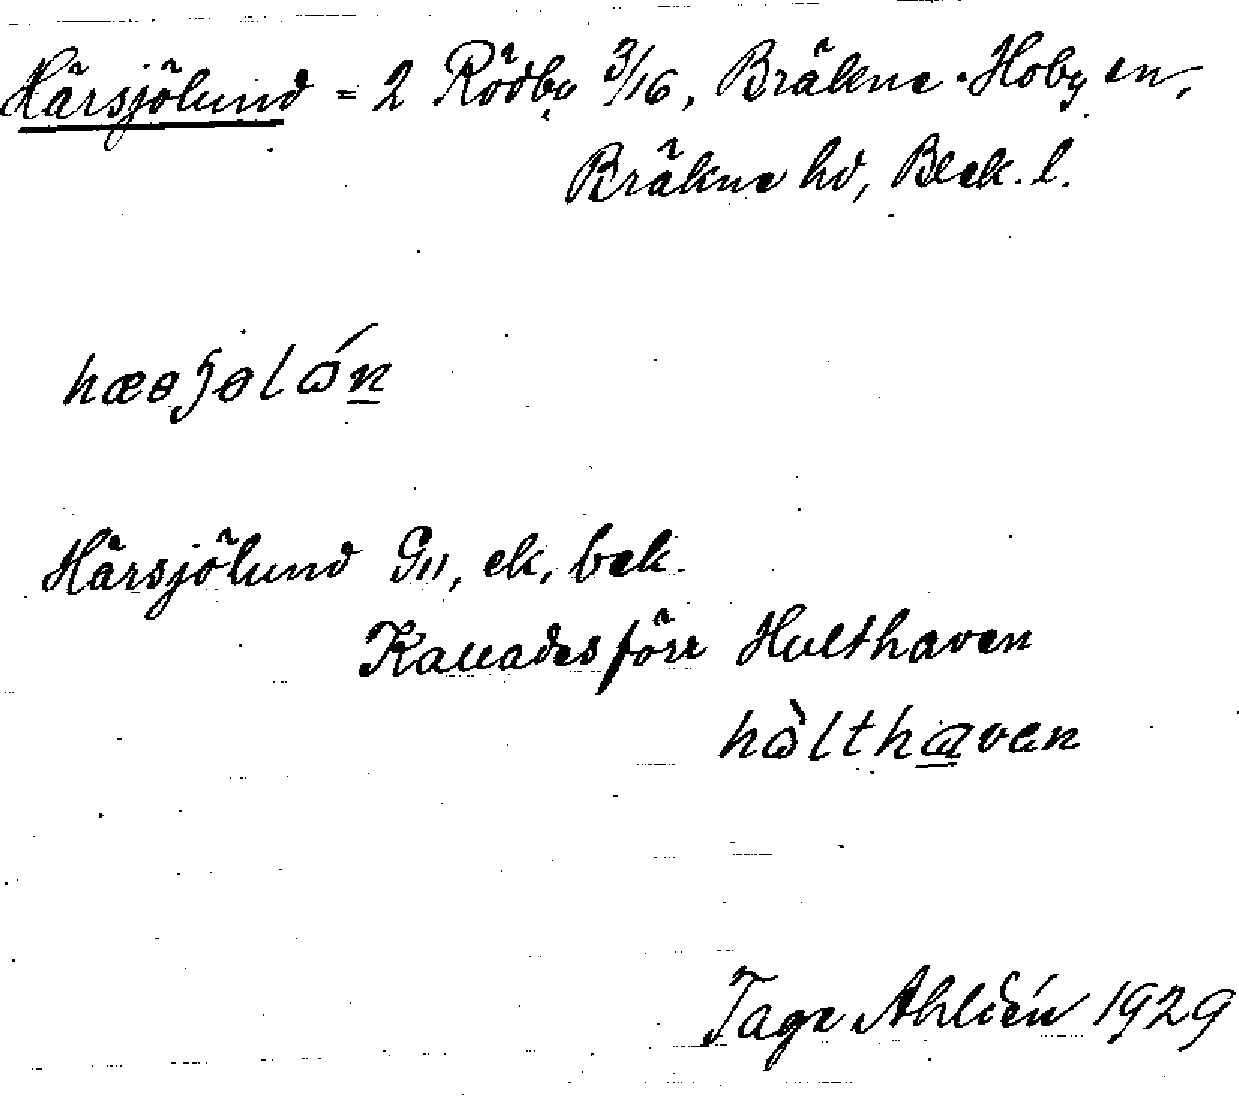 Härsjölund = 2 Rödby 3/16, Bräkne-Hoby sn,
Bräkne hd, Blek. l.
Härsjölund Gd, ek, bek.
Kallades förr Hulthaven
Tage Ahldén 1929